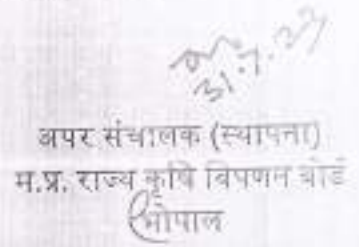 31.7.23
अपर संचालक (स्थापना)
म.प्र. राज्य कृषि विपणन बोर्ड
भोपाल